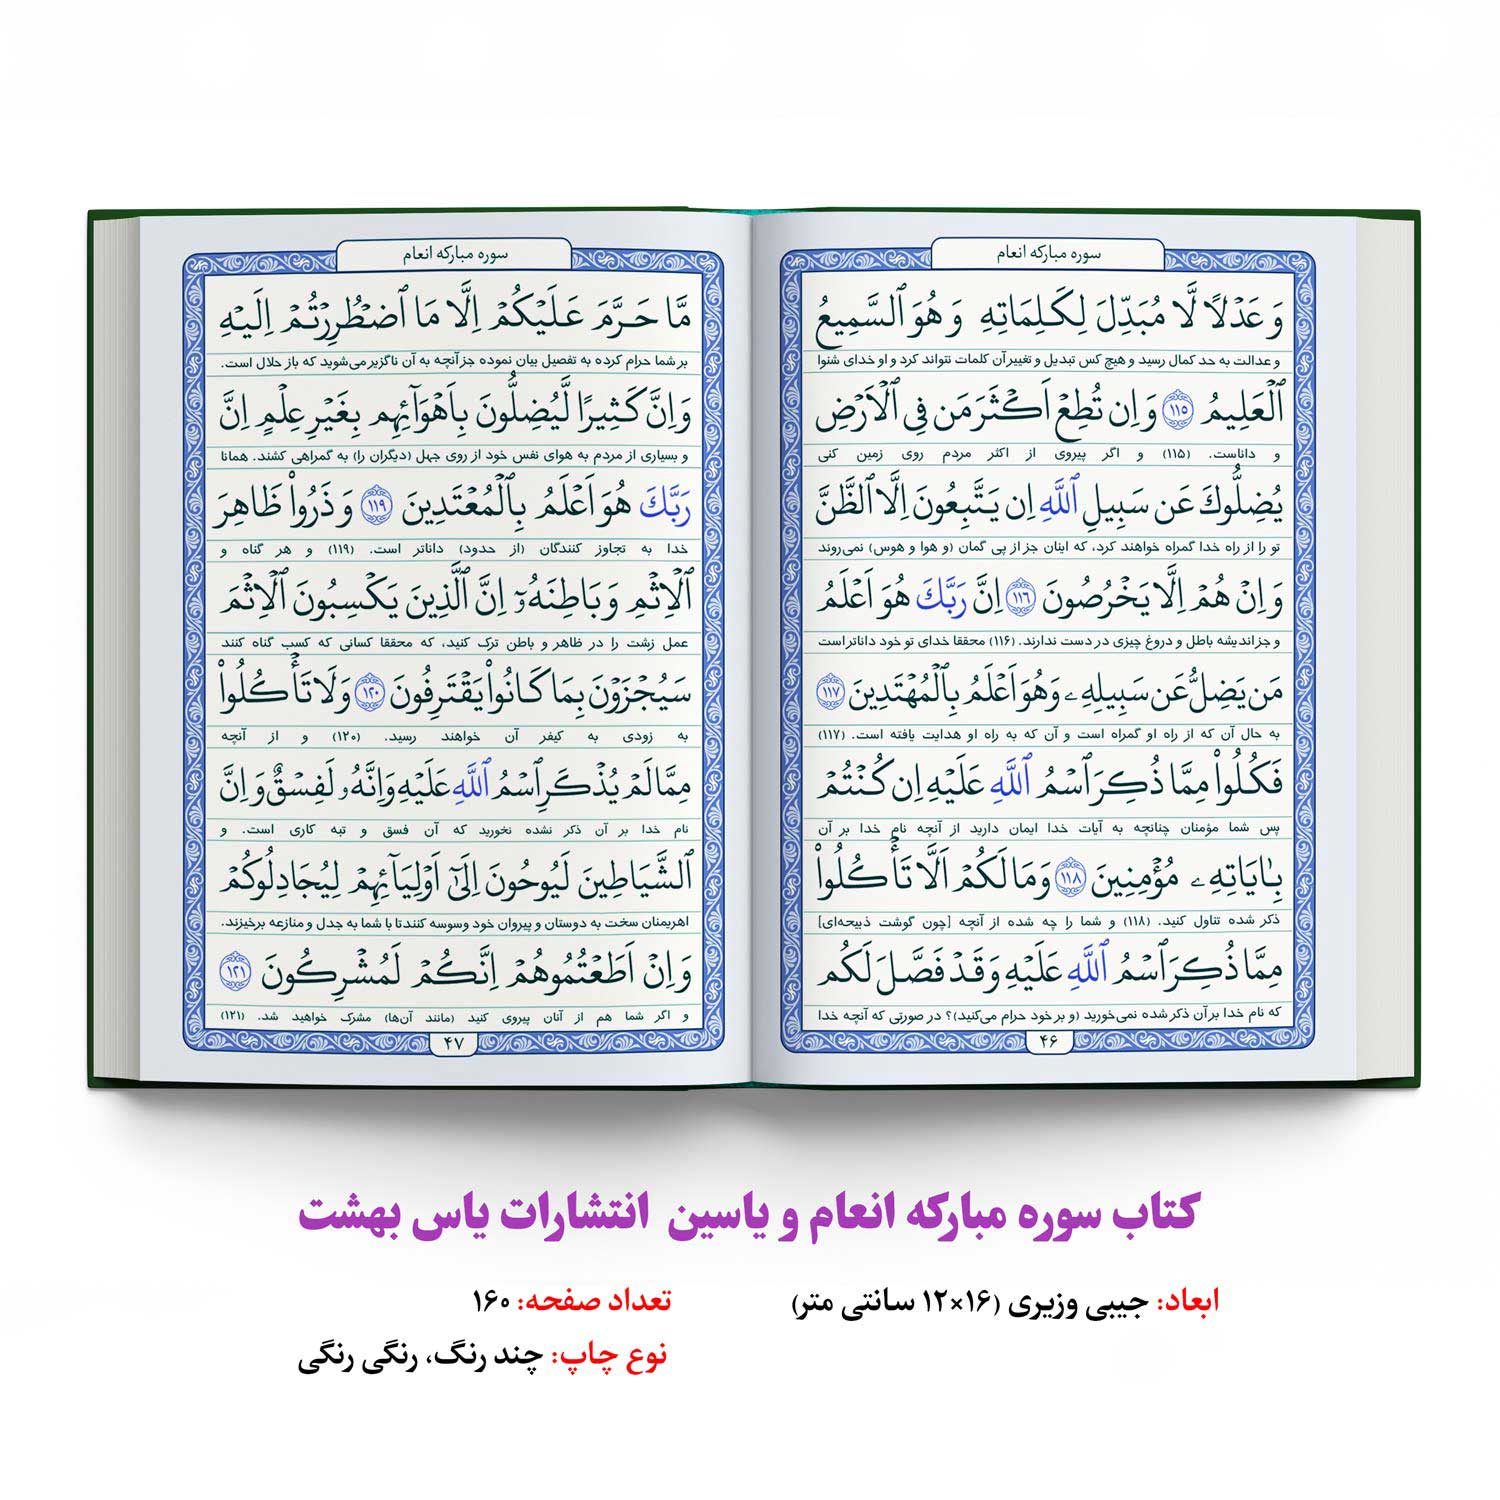 سوره مبارکه انعام
وَ عَدْلًا لَّا مُبَدِّلَ لِكَلِمَاتِهِ وَ هُوَ ٱلسَّمِيعُ
و عدالت به حد کمال رسید و هیچ کس تبدیل و تغییر آن کلمات نتواند کرد و او خدای شنوا
ٱلْعَلِيمُ ﴿١١٥﴾ وَ إِن تُطِعْ أَكْثَرَ مَن فِي ٱلْأَرْضِ
و داناست. (۱۱۵) و اگر پیروی از اکثر مردم روی زمین کنی
يُضِلُّوكَ عَن سَبِيلِ ٱللَّهِ اِن يَتَّبِعُونَ اِلَّا ٱلظَّنَّ
تو را از راه خدا گمراه خواهند کرد، که اینان جز از پی گمان (و هوا و هوس) نمی‌روند
وَ اِنْ هُمْ اِلَّا يَخْرُصُونَ ﴿١١٦﴾ اِنَّ رَبَّكَ هُوَ اَعْلَمُ
و جز اندیشه باطل و دروغ چیزی در دست ندارند. (۱۱۶) محققا خدای تو خود داناتر است
مَن يَضِلُّ عَن سَبِيلِهِۦ وَ هُوَ اَعْلَمُ بِٱلْمُهْتَدِينَ ﴿١١٧﴾
به حال آن که از راه او گمراه است و آن که به راه او هدایت یافته است. (۱۱۷)
فَكُلُواْ مِمَّا ذُكِرَ ٱسْمُ ٱللَّهِ عَلَيْهِ اِن كُنْتُمْ
پس شما مؤمنان چنانچه به آیات خدا ایمان دارید از آنچه نام خدا بر آن
بِـَٔايَاتِهِۦ مُؤْمِنِينَ ﴿١١٨﴾ وَ مَا لَكُمْ اَلَّا تَأْكُلُواْ
ذکر شده تناول کنید. (۱۱۸) و شما را چه شده از آنچه [چون گوشت ذبیحه‌ای]
مِمَّا ذُكِرَ ٱسْمُ ٱللَّهِ عَلَيْهِ وَ قَدْ فَصَّلَ لَكُم
که نام خدا بر آن ذکر شده نمی‌خورید (و بر خود حرام می‌کنید)؟ در صورتی که آنچه خدا
۴۶
سوره مبارکه انعام
مَّا حَرَّمَ عَلَيْكُمْ اِلَّا مَا ٱضْطُرِرْتُمْ اِلَيْهِ
بر شما حرام کرده به تفصیل بیان نموده جز آنچه به آن ناگزیر می‌شوید که باز حلال است.
وَ اِنَّ كَثِيرًا لَّيُضِلُّونَ بِاَهْوَآئِهِم بِغَيْرِ عِلْمٍ اِنَّ
و بسیاری از مردم به هوای نفس خود از روی جهل (دیگران را) به گمراهی کشند. همانا
رَبَّكَ هُوَ اَعْلَمُ بِٱلْمُعْتَدِينَ ﴿١١٩﴾ وَ ذَرُواْ ظَاهِرَ
خدا به تجاوز کنندگان (از حدود) داناتر است. (۱۱۹) و هر گناه و
ٱلْاِثْمِ وَ بَاطِنَهُۥٓ اِنَّ ٱلَّذِينَ يَكْسِبُونَ ٱلْاِثْمَ
عمل زشت را در ظاهر و باطن ترک کنید، که محققا کسانی که کسب گناه کنند
سَيُجْزَوْنَ بِمَا كَانُواْ يَقْتَرِفُونَ ﴿١٢٠﴾ وَ لَا تَأْكُلُواْ
به زودی به کیفر آن خواهند رسید. (۱۲۰) و از آنچه
مِمَّا لَمْ يُذْكَرِ ٱسْمُ ٱللَّهِ عَلَيْهِ وَ اِنَّهُۥ لَفِسْقٌ وَ اِنَّ
نام خدا بر آن ذکر نشده نخورید که آن فسق و تبه کاری است. و
ٱلشَّيَاطِينَ لَيُوحُونَ اِلَىٰٓ اَوْلِيَآئِهِمْ لِيُجَادِلُوكُمْ
اهریمنان سخت به دوستان و پیروان خود وسوسه کنند تا با شما به جدل و منازعه برخیزند.
وَ اِنْ اَطَعْتُمُوهُمْ اِنَّكُمْ لَمُشْرِكُونَ ﴿١٢١﴾
و اگر شما هم از آنان پیروی کنید (مانند آن‌ها) مشرک خواهید شد. (۱۲۱)
۴۷
کتاب سوره مبارکه انعام و یاسین انتشارات یاس بهشت
ابعاد: جیبی وزیری (۱۶×۱۲ سانتی متر)
تعداد صفحه: ۱۶۰
نوع چاپ: چند رنگ، رنگی رنگی